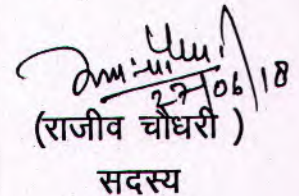 27/06/18
(राजीव चौधरी )
सदस्य